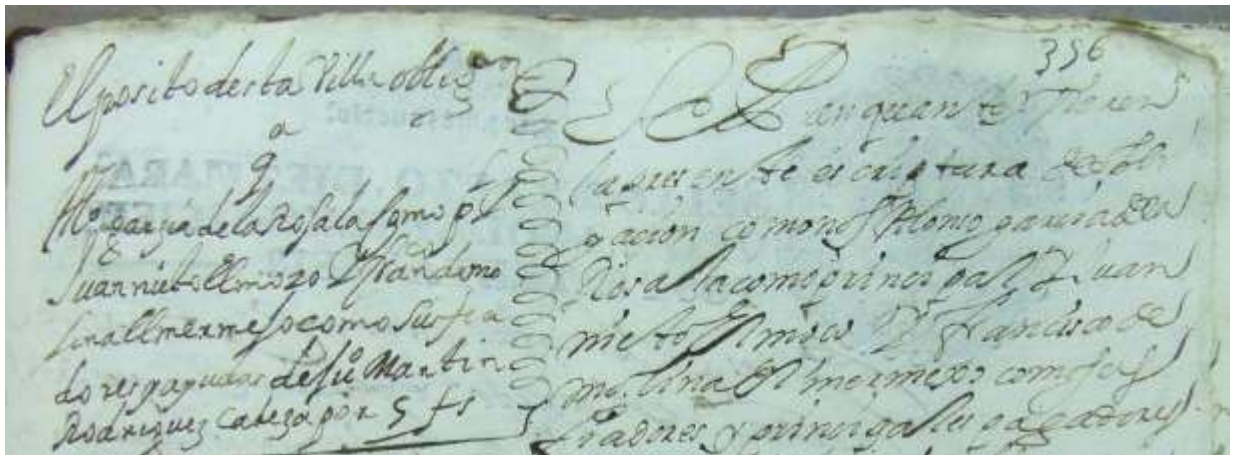 El posito desta Villa oblig.on
a
q
Al.o garzia de la Rosa la como p.l
Juan nieto el mozo Y fran.co de mo
lina el mermejo como sus fia
dores pagados de su Martin
Rodriguez Cabeza por 5 fs
356
Sepan quantos Vieren
la presente escriptura de obli
gacion como nos Alonso garcia de la
Rosa la como prinсipal Y Juan
nieto El moço Y francisco de
molina El mermexo como sus
fiadores y principales pagadores